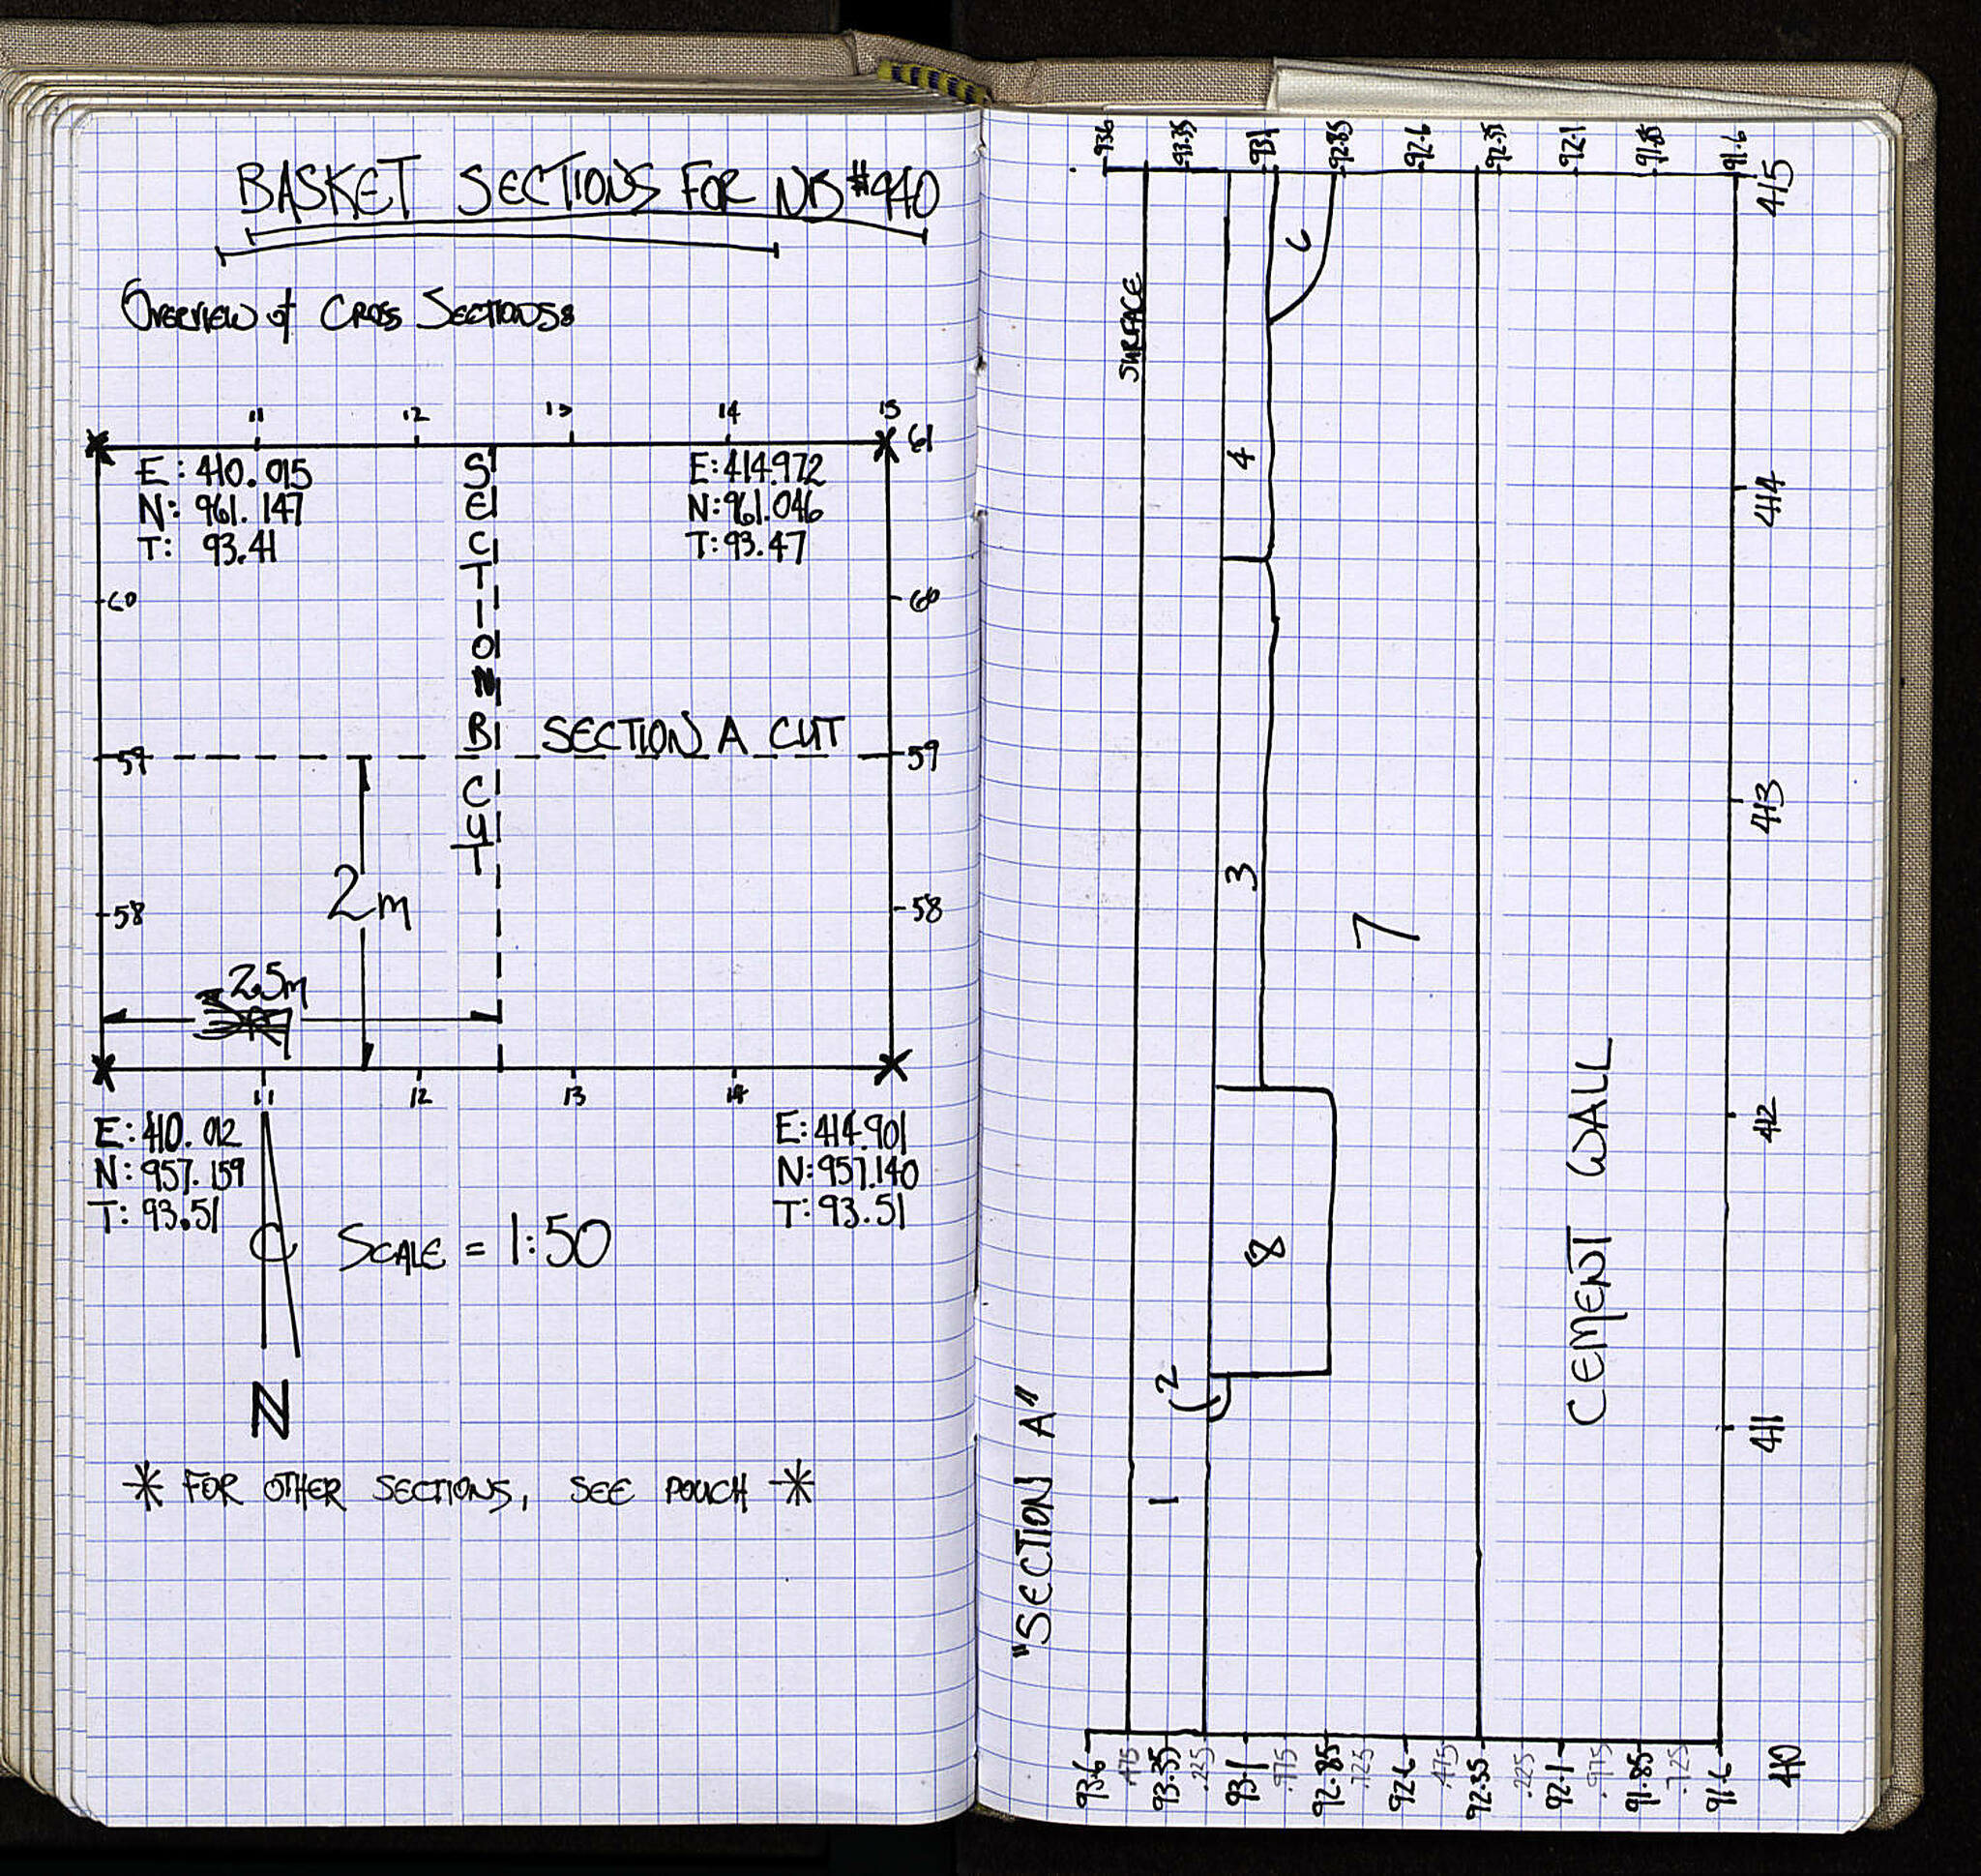 BASKET SECTIONS FOR NB #940
OVERVIEW of CROSS SECTIONS:
11 12 13 14 15
61
E: 410.015
N: 961.147
T: 93.41
E: 414.972
N: 961.046
T: 93.47
SECTION B CUT
60
60
SECTION A CUT
59
59
2m
58
58
2.5m
11 12 13 14
E: 410.012
N: 957.159
T: 93.51
E: 414.901
N: 957.140
T: 93.51
SCALE = 1:50
N
* FOR OTHER SECTIONS, SEE POUCH *
"SECTION A"
SURFACE
1
2
3
4
6
7
8
CEMENT WALL
93.6
93.35
93.1
92.85
92.6
92.35
92.1
91.85
91.6
93.6
.475
93.35
.225
93.1
.975
92.85
.725
92.6
.475
92.35
.225
92.1
.975
91.85
.725
91.6
410
411
412
413
414
415